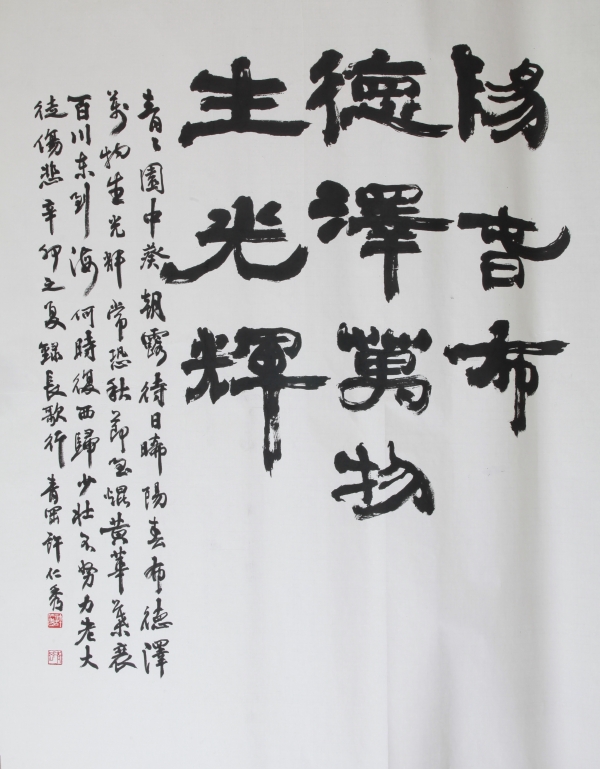 陽春布
德澤萬物
生光輝
青〻園中葵朝露待日晞陽春布德澤
萬物生光輝常恐秋節至焜黃華葉衰
百川東到海何時復西歸少壯不努力老大
徒傷悲辛卯之夏錄長歌行 青 許仁秀